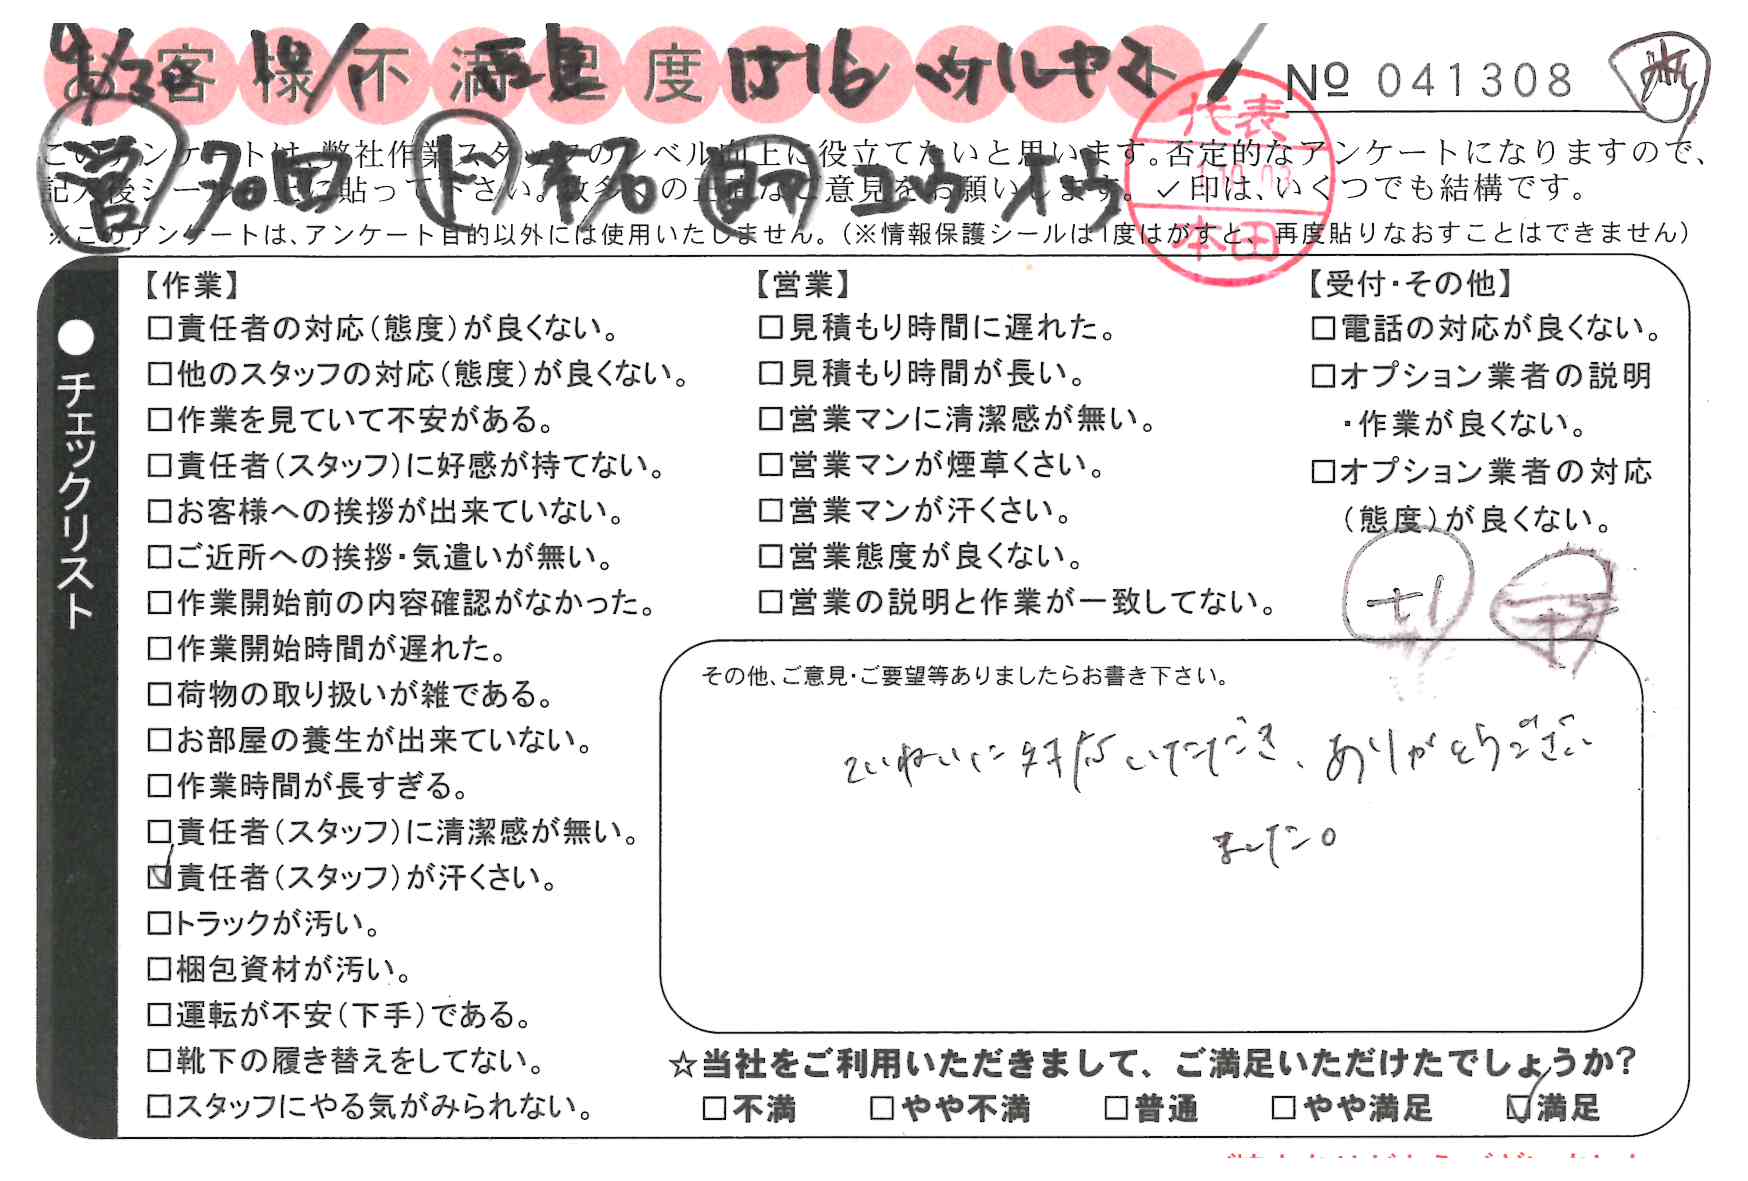 お客様不満足度アンケート
№ 041308
このアンケートは、弊社作業スタッフのレベル向上に役立てたいと思います。否定的なアンケートになりますので、
記入後シールを上に貼って下さい。数多くの正直なご意見をお願いします。✓印は、いくつでも結構です。
※このアンケートは、アンケート目的以外には使用いたしません。（※情報保護シールは1度はがすと、再度貼りなおすことはできません）
代表
本田
●チェックリスト
【作業】
□責任者の対応（態度）が良くない。
□他のスタッフの対応（態度）が良くない。
□作業を見ていて不安がある。
□責任者（スタッフ）に好感が持てない。
□お客様への挨拶が出来ていない。
□ご近所への挨拶・気遣いが無い。
□作業開始前の内容確認がなかった。
□作業開始時間が遅れた。
□荷物の取り扱いが雑である。
□お部屋の養生が出来ていない。
□作業時間が長すぎる。
□責任者（スタッフ）に清潔感が無い。
☑責任者（スタッフ）が汗くさい。
□トラックが汚い。
□梱包資材が汚い。
□運転が不安（下手）である。
□靴下の履き替えをしてない。
□スタッフにやる気がみられない。
【営業】
□見積もり時間に遅れた。
□見積もり時間が長い。
□営業マンに清潔感が無い。
□営業マンが煙草くさい。
□営業マンが汗くさい。
□営業態度が良くない。
□営業の説明と作業が一致してない。
【受付・その他】
□電話の対応が良くない。
□オプション業者の説明
・作業が良くない。
□オプション業者の対応
（態度）が良くない。
その他、ご意見・ご要望等ありましたらお書き下さい。
ていねいに対応いただき、ありがとうござい
ました。
☆当社をご利用いただきまして、ご満足いただけたでしょうか?
□不満 □やや不満 □普通 □やや満足 ☑満足